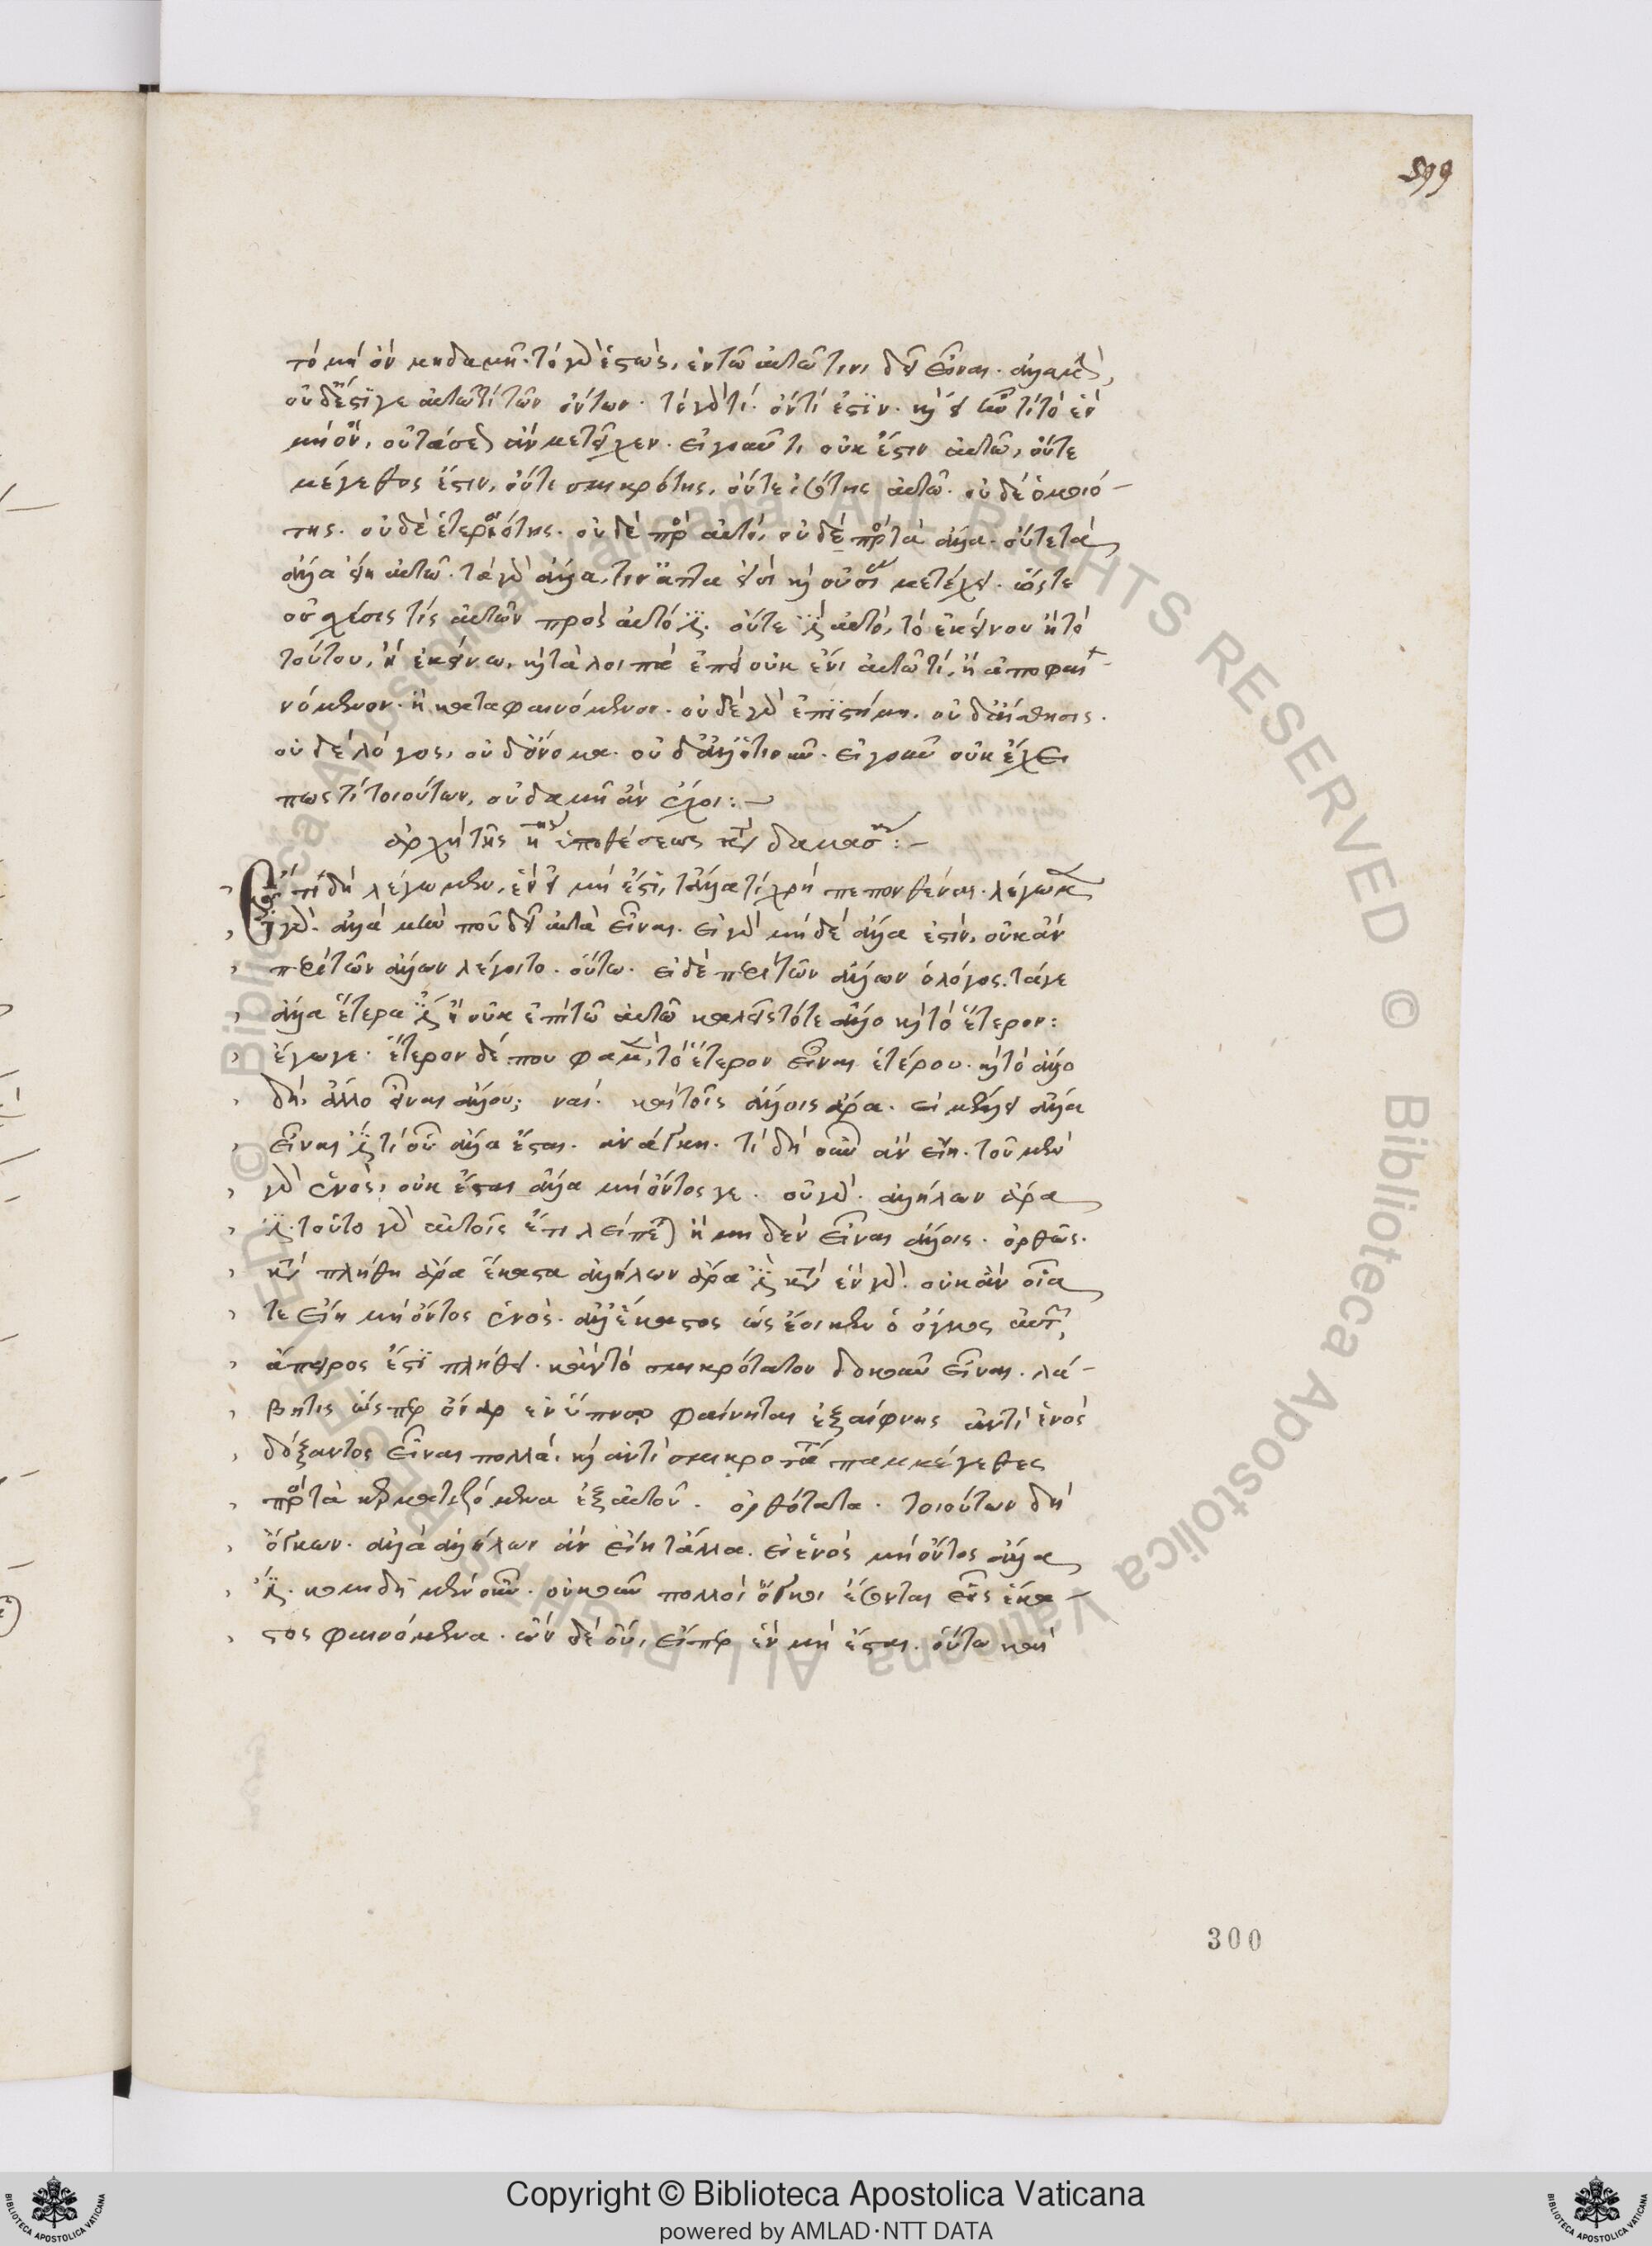 599
τὸ μὴ ὂν μηδαμῆ· τὸ γὰρ ἑστὼς, ἐν τῶ αὐτῶ τινι δεῖ εἶναι· ἀλλὰ μὴν,
οὐδ' ἔστί γε αὐτῶ τί τῶν ὄντων· τὸ γὰρ τὶ· ὄν τί ἐστϊν· καὶ εἰ τὸ ἓν
μὴ ὂν, οὔτ' ἄν μετεῖχεν· εἰ γοῦν τι οὐκ ἔστιν αὐτῶ, οὔτε
μέγεθος ἔστιν, οὔτε σμικρότης, οὔτε ἰσότης αὐτῶ· οὐδὲ ὁμοιό-
της· οὐδὲ ἑτεροιότης· οὐδὲ πρὸς αὐτὸ, οὐδὲ πρὸς τὰ ἄλλα· οὔτε τὰ
ἄλλα αὐτῶ· τὰ γὰρ ἄλλα, εἰσὶ καὶ οὐσίας μετέχει· ὥστε
οὐ σχέσις τίς αὐτῶν πρὸς αὐτό ἐστι· οὔτε ἐστὶ αὐτὸ, τὸ ἐκείνου ἢ τὸ
τούτου, ἢ ἐκείνω, καὶ τὰ λοιπὰ ἐπεὶ οὐκ ἔνι αὐτῶ τί, ἢ ἀποφαι-
νόμενον· ἢ καταφαινόμενον· οὐδὲ γὰρ ἐπϊστήμη, οὐδ' αἴσθησις·
οὐδὲ λόγος, οὐδ' ὄνομα· οὐδ' ἄλλ' ὁτιοῦν· εἰ γοῦν οὐκ ἔχει
πως τὶ τοιούτων, οὐδαμῆ ἂν ἔχοι:—
ἀρχὴ τῆς η ὑποθέσεως κατὰ δαμασ:—
Ἔτι δὴ λέγωμεν, ἓν εἰ μή ἐστι, τἄλλα τί χρὴ πεπονθέναι· λέγωμεν
γὰρ· ἄλλα μὲν που δεῖ αὐτὰ εἶναι· εἰ γὰρ μηδὲ ἄλλα ἐστὶν, οὐκ ἂν
περὶ τῶν ἄλλων λέγοιτο· οὕτω· εἰ δὲ περὶ τῶν ἄλλων ὁ λόγος, τά γε
ἄλλα ἕτερά ἐστι· ἢ οὐκ ἐπὶ τῶ αὐτῶ καλεῖς τό τε ἄλλο καὶ τὸ ἕτερον:
ἔγωγε· ἕτερον δέ που φαμὲν, τὸ ἕτερον εἶναι ἑτέρου· καὶ τὸ ἄλλο
δὴ, ἄλλο εἶναι ἄλλου; ναί· καὶ τοῖς ἄλλοις ἄρα· εἰ μέλλει ἄλλα
εἶναι ἐστὶ τὶ οὗ ἄλλα ἔσται· ἀνάγκη· τί δὴ οὖν ἂν εἴη· τοῦ μὲν
γὰρ ἑνὸς, οὐκ ἔσται ἄλλα μὴ ὄντος γε· οὐ γὰρ· ἀλλήλων ἄρα
ἐστί· τοῦτο γὰρ αὐτοῖς ἔτι λείπεται ἢ μηδὲν εἶναι ἄλλοις· ὀρθῶς·
κατὰ πλήθη ἄρα ἕκαστα ἀλλήλων ἄρα ἐστὶ κατὰ ἓν γὰρ· οὐκ ἂν οἷα
τε εἴη μὴ ὄντος ἑνὸς· ἀλλ' ἕκαστος ὡς ἔοικεν ὁ ὄγκος αὐτῶν,
ἄπειρος ἐστϊ πλήθει· κἂν τὸ σμικρότατον δοκοῦν εἶναι· λά-
βη τις ὥσπερ ὄναρ ἐν ὕπνω φαίνηται ἐξαίφνης ἀντὶ ἑνὸς
δόξαντος εἶναι πολλὰ, καὶ ἀντὶ σμικροτάτου παμμέγεθες
πρὸς τὰ κερματιζόμενα ἐξ αὐτοῦ· ὀρθότατα· τοιούτων δὴ
ὄγκων· ἄλλα ἀλλήλων ἂν εἴη τἄλλα· εἰ ἑνὸς μὴ ὄντος ἄλλα
ἐστί· κομιδῆ μὲν οὖν· οὐκοῦν πολλοὶ ὄγκοι ἔσονται εἷς ἕκα-
στος φαινόμενα· ὢν δὲ οὒ, εἴπερ ἓν μὴ ἔσται· οὕτω καὶ
300
Copyright © Biblioteca Apostolica Vaticana
powered by AMLAD·NTT DATA